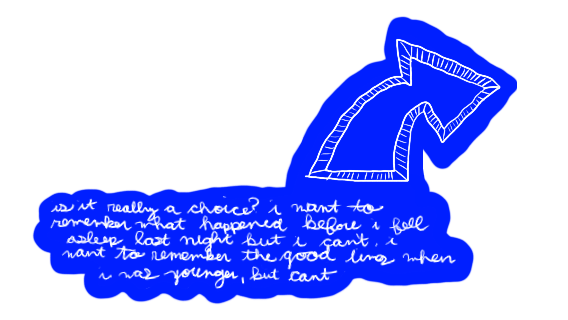 is it really a choice? i want to
remember what happened before i fell
asleep last night but i can't. i
want to remember the good when
i was younger, but cant